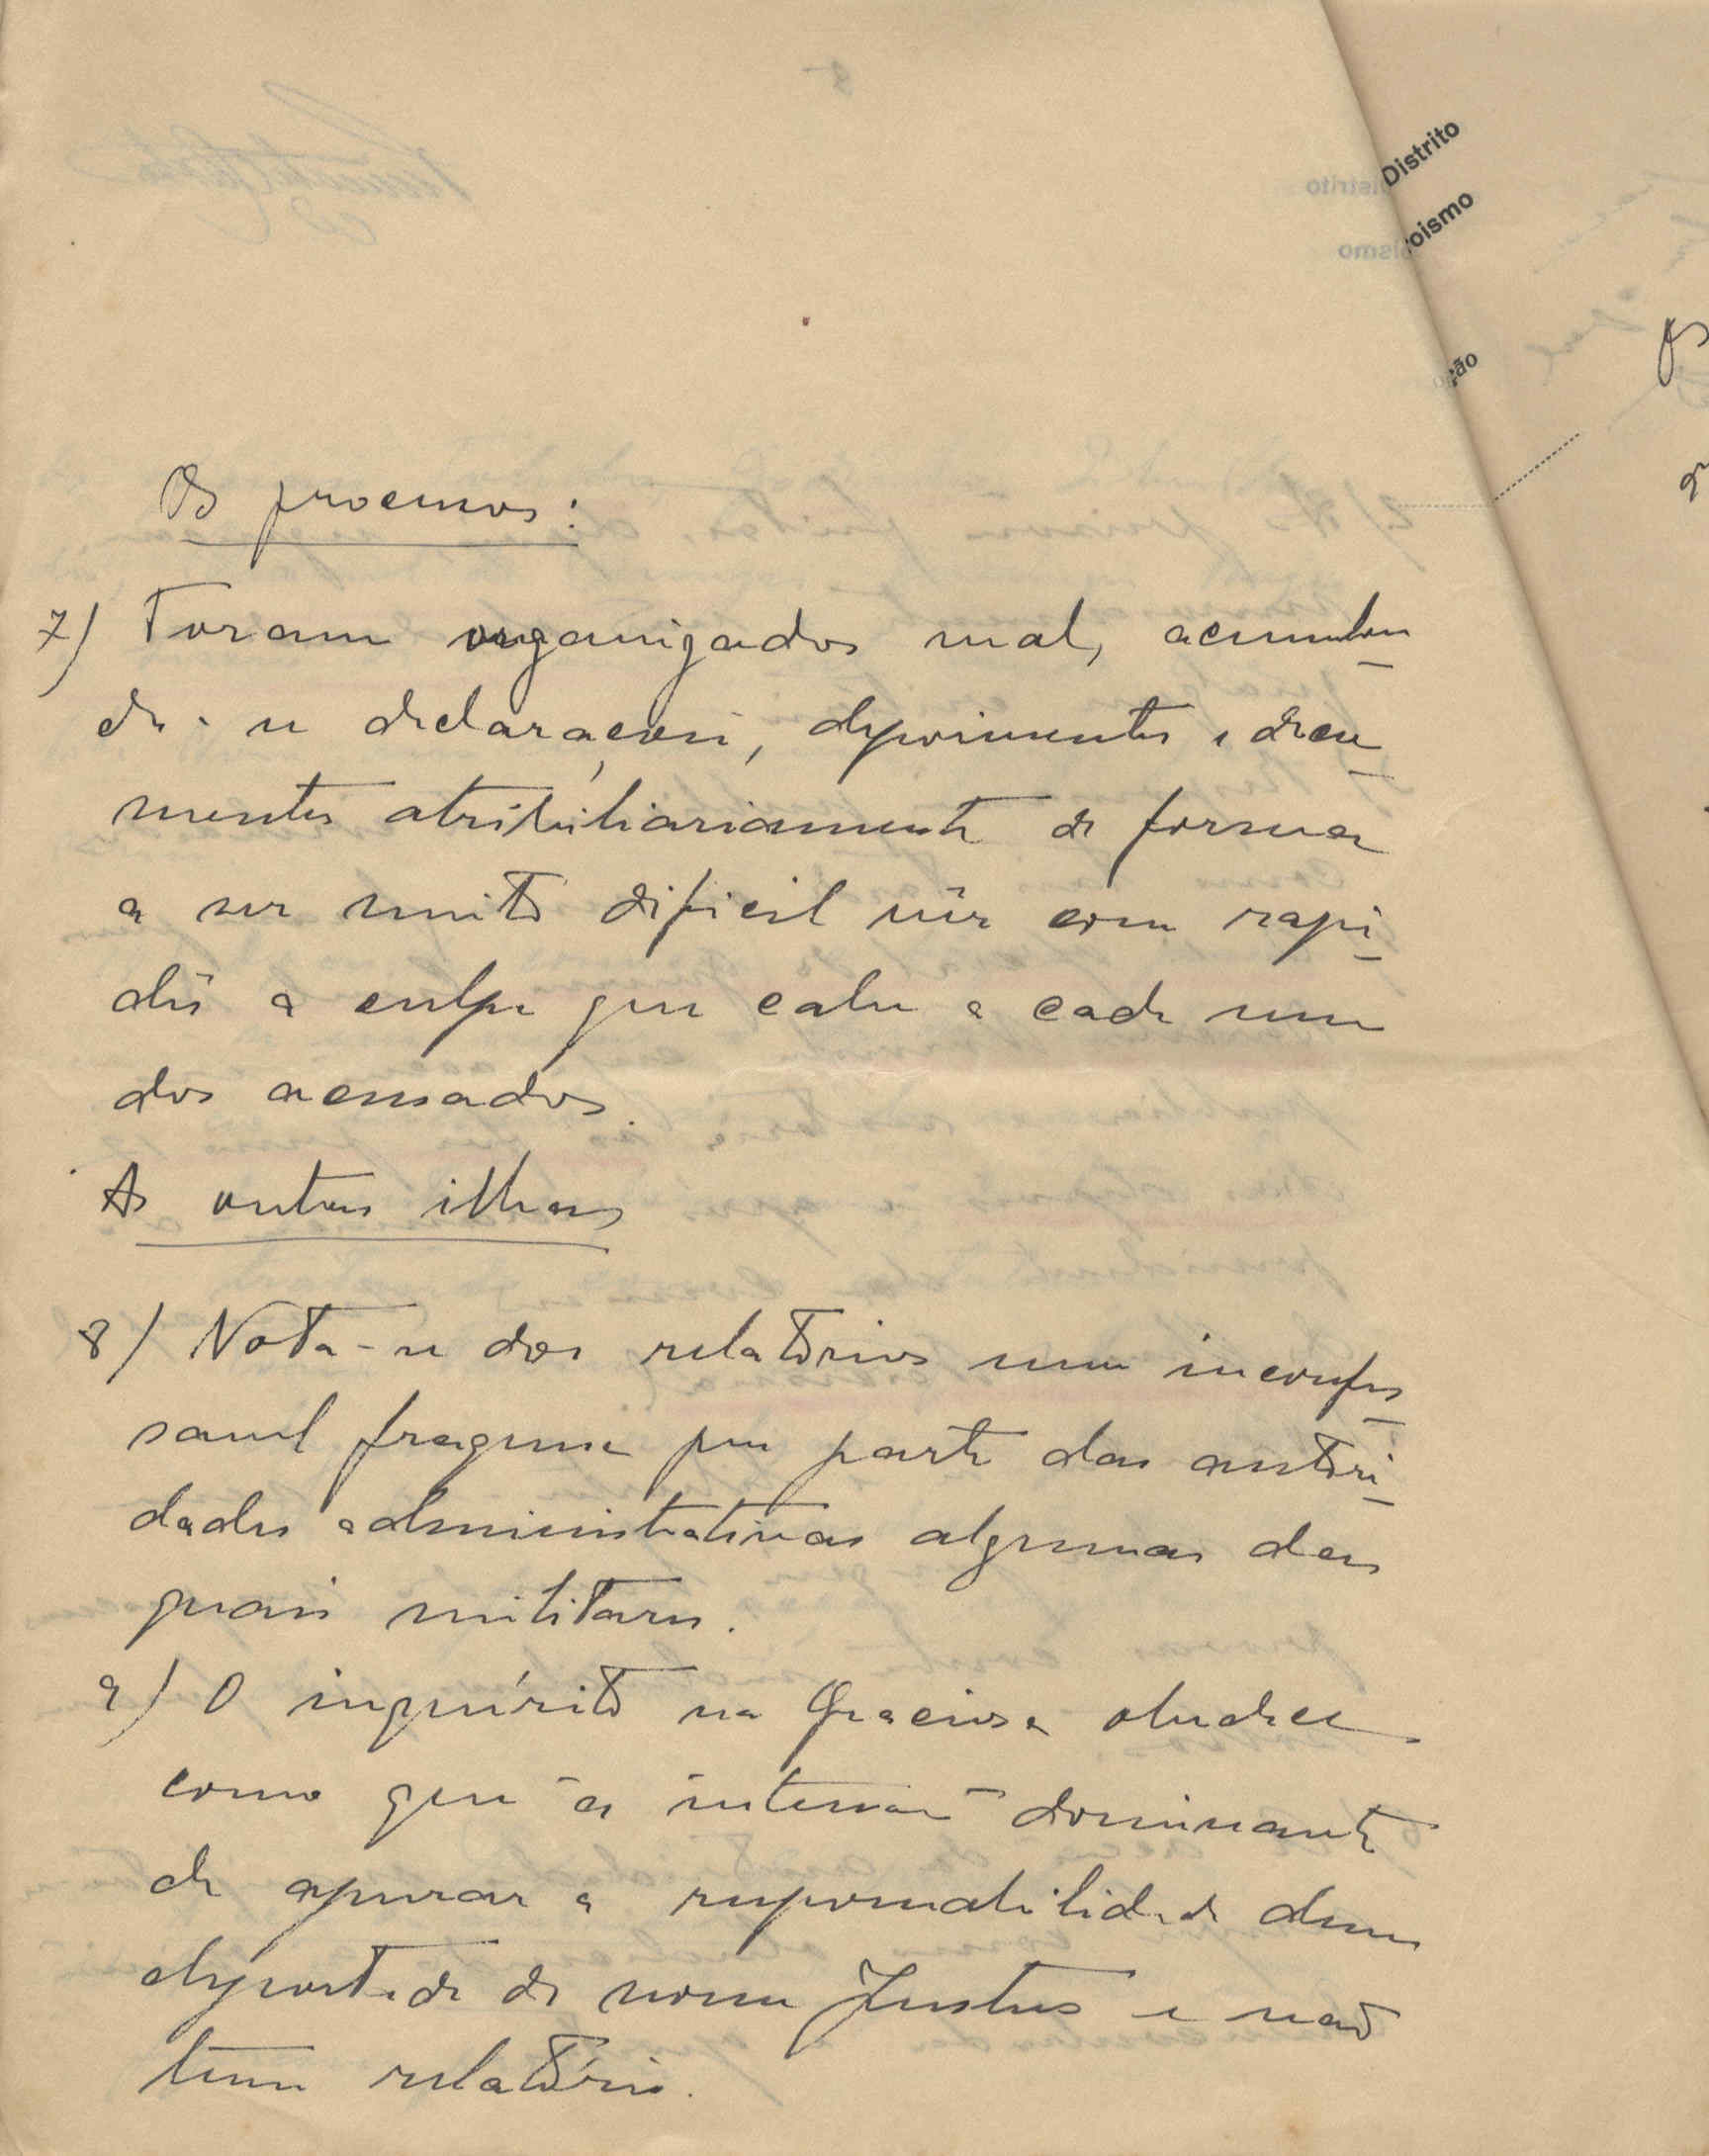 Distrito
oismo
ção
Os processos:
7) Foram organizados mal, acumulan-
do-se declarações, depoimentos e docu-
mentos atribiliariamente de forma
a ser muito dificil vêr com rapi-
dês a culpa que cabe a cada um
dos acusados.
As outras ilhas
8) Nota-se dos relatórios uma incompres
savel fraquesa por parte das autori-
dades administrativas algumas das
quais militares.
9) O inquérito na Graciosa obedeceu
como que á intensão dominante
de apurar a responsabilidade dum
deportado de nome Justus e não
tem relatório.